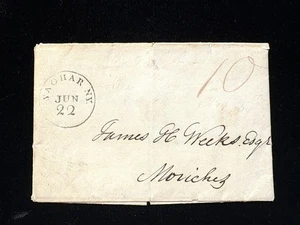 SAGHAR. N.Y.
JUN
22
10
James H Weeks, Esqr
Moriches